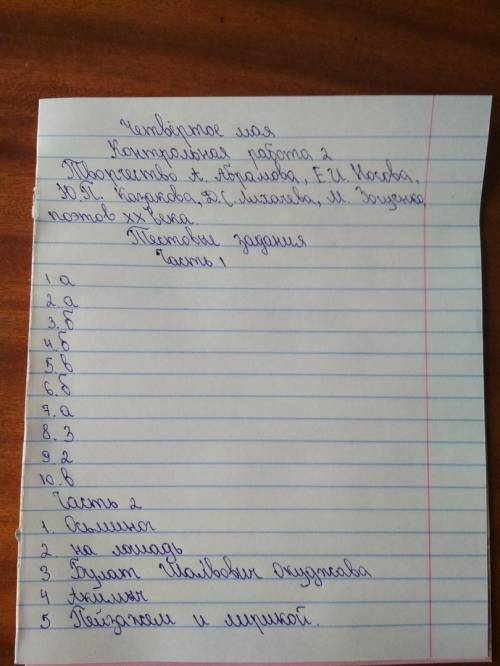 Четвёртое мая
Контрольная работа 2
Творчество А. Абрамова, Е.И Носова,
Ю.П. Казакова, Д.С. Лихачева, М. Зощенко,
поэтов XX века.
Тестовые задания
Часть 1
1. а
2. а
3. б
4. б
5. в
6. б
7. а
8. 3
9. 2
10. в
Часть 2
1. Осьминог
2. на лошадь
3 Булат Шалвович Окуджава
4 Акимыч
5 Пейзажем и лирикой.